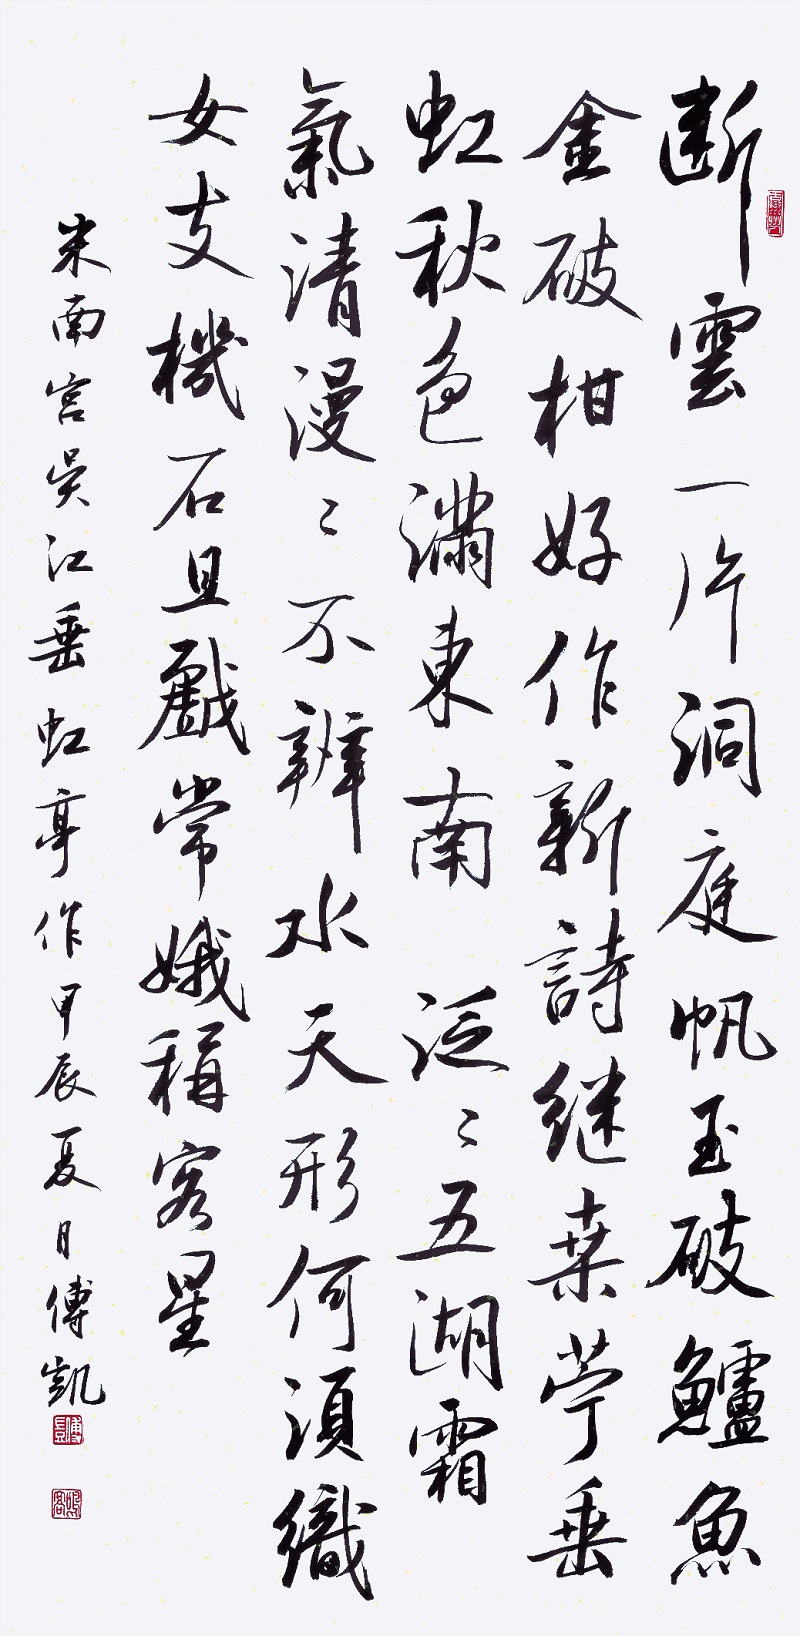 斷雲一片洞庭帆玉破鱸魚
金破柑好作新詩継桒苧垂
虹秋色滿東南 泛〻五湖霜
氣清漫〻不辨水天形何須織
女支機石且戲常娥稱客星
米南宮吳江垂虹亭作甲辰夏日傅凱